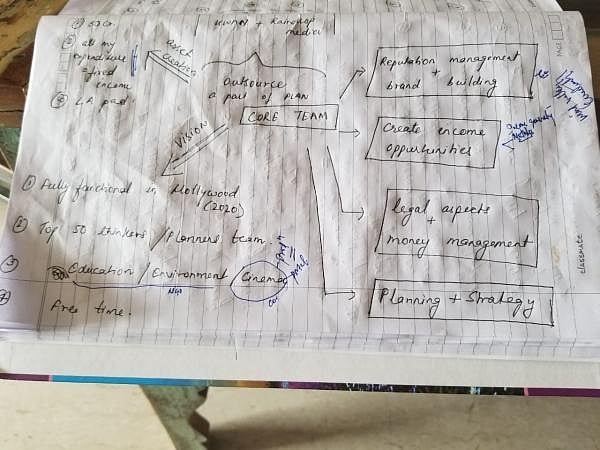 50 Cr.
all my
expenditure
= fixed
income
LA pad
asset
creation
media
Outsource
a part of PLAN
CORE TEAM
VISION
① Fully functional in Hollywood
(2020)
② Top 50 thinkers / Planners team.
③ Education / Environment / Cinema
NGO
Free time.
Reputation management
+
brand building
Create income
oppurtunities
legal aspects
+
money management
Planning + Strategy
classmate